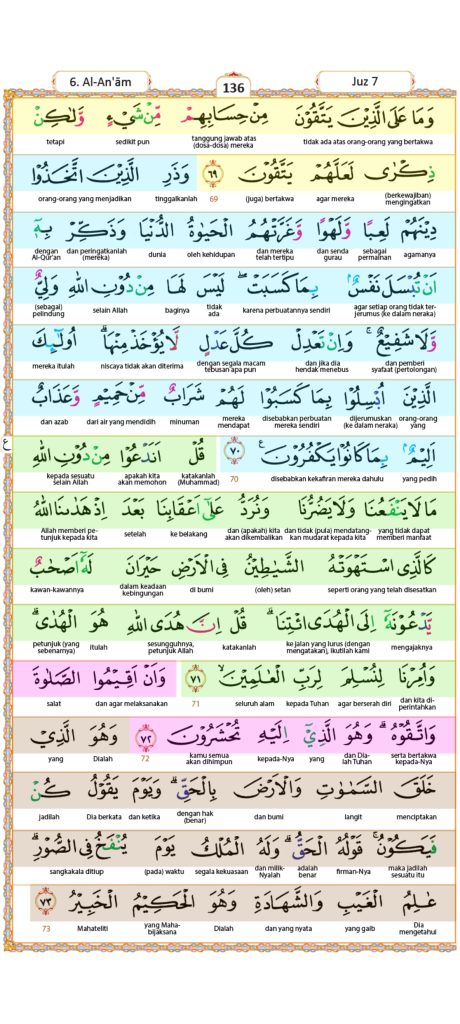 6. Al-An'ām
136
Juz 7
وَمَا عَلَى الَّذِيْنَ يَتَّقُوْنَ مِنْ حِسَابِهِمْ مِّنْ شَيْءٍ وَّلٰكِنْ
tidak ada atas orang-orang yang bertakwa tanggung jawab atas (dosa-dosa) mereka sedikit pun tetapi
ذِكْرٰى لَعَلَّهُمْ يَتَّقُوْنَ ٦٩ وَذَرِ الَّذِيْنَ اتَّخَذُوْا
(berkewajiban) mengingatkan agar mereka (juga) bertakwa 69 tinggalkanlah orang-orang yang menjadikan
دِيْنَهُمْ لَعِبًا وَّلَهْوًا وَّغَرَّتْهُمُ الْحَيٰوةُ الدُّنْيَا وَذَكِّرْ بِهٖٓ
agamanya sebagai permainan dan senda gurau dan mereka telah tertipu oleh kehidupan dunia dan peringatkanlah (mereka) dengan Al-Qur'an
اَنْ تُبْسَلَ نَفْسٌۢ بِمَا كَسَبَتْۖ لَيْسَ لَهَا مِنْ دُوْنِ اللّٰهِ وَلِيٌّ
agar setiap orang tidak ter-jerumus (ke dalam neraka) karena perbuatannya sendiri tidak ada baginya selain Allah (sebagai) pelindung
وَّلَا شَفِيْعٌۚ وَاِنْ تَعْدِلْ كُلَّ عَدْلٍ لَّا يُؤْخَذْ مِنْهَاۗ اُولٰۤىِٕكَ
dan pemberi syafaat (pertolongan) dan jika dia hendak menebus dengan segala macam tebusan apa pun niscaya tidak akan diterima mereka itulah
الَّذِيْنَ اُبْسِلُوْا بِمَا كَسَبُوْا لَهُمْ شَرَابٌ مِّنْ حَمِيْمٍ وَّعَذَابٌ
orang-orang yang dijerumuskan (ke dalam neraka) disebabkan perbuatan mereka sendiri mereka mendapat minuman dari air yang mendidih dan azab
اَلِيْمٌۢ بِمَا كَانُوْا يَكْفُرُوْنَ ࣖ ٧٠ قُلْ اَنَدْعُوْا مِنْ دُوْنِ اللّٰهِ
ع
yang pedih disebabkan kekafiran mereka dahulu 70 katakanlah (Muhammad) apakah kita akan memohon kepada sesuatu selain Allah
مَا لَا يَنْفَعُنَا وَلَا يَضُرُّنَا وَنُرَدُّ عَلٰٓى اَعْقَابِنَا بَعْدَ اِذْ هَدٰىنَا اللّٰهُ
yang tidak dapat memberi manfaat dan tidak (pula) mendatang-kan mudarat kepada kita dan (apakah) kita akan dikembalikan ke belakang setelah Allah memberi pe-tunjuk kepada kita
كَالَّذِى اسْتَهْوَتْهُ الشَّيٰطِيْنُ فِى الْاَرْضِ حَيْرَانَ لَهٗٓ اَصْحٰبٌ
seperti orang yang telah disesatkan (oleh) setan di bumi dalam keadaan kebingungan kawan-kawannya
يَّدْعُوْنَهٗٓ اِلَى الْهُدَى ائْتِنَاۗ قُلْ اِنَّ هُدَى اللّٰهِ هُوَ الْهُدٰىۗ
mengajaknya ke jalan yang lurus (dengan mengatakan), ikutilah kami katakanlah sesungguhnya, petunjuk Allah itulah petunjuk (yang sebenarnya)
وَاُمِرْنَا لِنُسْلِمَ لِرَبِّ الْعٰلَمِيْنَۙ ٧١ وَاَنْ اَقِيْمُوا الصَّلٰوةَ
dan kita di-perintahkan agar berserah diri kepada Tuhan seluruh alam 71 dan agar melaksanakan salat
وَاتَّقُوْهُۗ وَهُوَ الَّذِيْٓ اِلَيْهِ تُحْشَرُوْنَ ٧٢ وَهُوَ الَّذِيْ
serta bertakwa kepada-Nya dan Dia-lah Tuhan yang kepada-Nya kamu semua akan dihimpun 72 Dialah yang
خَلَقَ السَّمٰوٰتِ وَالْاَرْضَ بِالْحَقِّۗ وَيَوْمَ يَقُوْلُ كُنْ
menciptakan langit dan bumi dengan hak (benar) dan ketika Dia berkata jadilah
فَيَكُوْنُۚ قَوْلُهُ الْحَقُّۗ وَلَهُ الْمُلْكُ يَوْمَ يُنْفَخُ فِى الصُّوْرِۗ
maka jadilah sesuatu itu firman-Nya adalah benar dan milik-Nyalah segala kekuasaan (pada) waktu sangkakala ditiup
عٰلِمُ الْغَيْبِ وَالشَّهَادَةِ وَهُوَ الْحَكِيْمُ الْخَبِيْرُ ٧٣
Dia mengetahui yang gaib dan yang nyata Dialah yang Maha-bijaksana Mahateliti 73